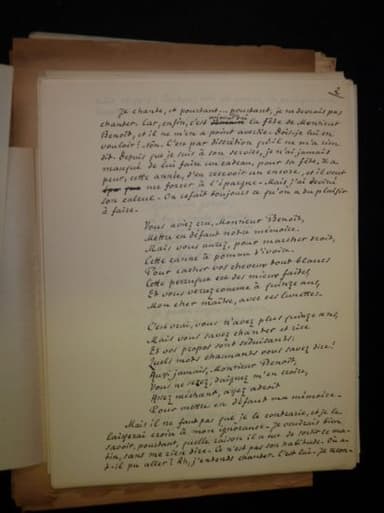 3
Je chante, et pourtant... pourtant, je ne devrais pas
chanter. Car, enfin, c'est aujourd'hui la fête de Monsieur
Benoît, et il ne m'en a point avertie. Dois-je lui en
vouloir? Non. C'est par discrétion qu'il ne m'a rien
dit. Depuis que je suis à son service, je n'ai jamais
manqué de lui faire un cadeau, pour sa fête. Il a
peur, cette année, d'en recevoir un encore, et il veut
me forcer à l'épargne. Mais j'ai deviné
son calcul. On refait toujours ce qu'on a du plaisir
à faire.
Vous aviez cru, Monsieur Benoît,
Mettre en défaut notre mémoire.
Mais vous aurez, pour marcher droit,
Cette canne à pomme d'ivoire.
Pour cacher vos cheveux tout blancs
Cette perruque est des mieux faites,
Et vous verrez comme à quinze ans,
Mon cher maître, avec ces lunettes.
C'est vrai, vous n'avez plus quinze ans,
Mais vous savez chanter et rire
Et vos propos sont séduisants:
Quels mots charmants vous savez dire!
Aussi jamais, Monsieur Benoît,
Vous ne serez, daignez m'en croire,
Assez méchant, assez adroit
Pour mettre en défaut ma mémoire.
Mais il ne faut pas que je le contrarie, et je le
laisserai croire à mon ignorance. Je voudrais bien
savoir, pourtant, quelle raison il a eue de sortir ce ma-
tin, sans me rien dire. Ce n'est pas son habitude. Où a-
t-il pu aller? Ah, j'entends chanter. C'est lui. Je